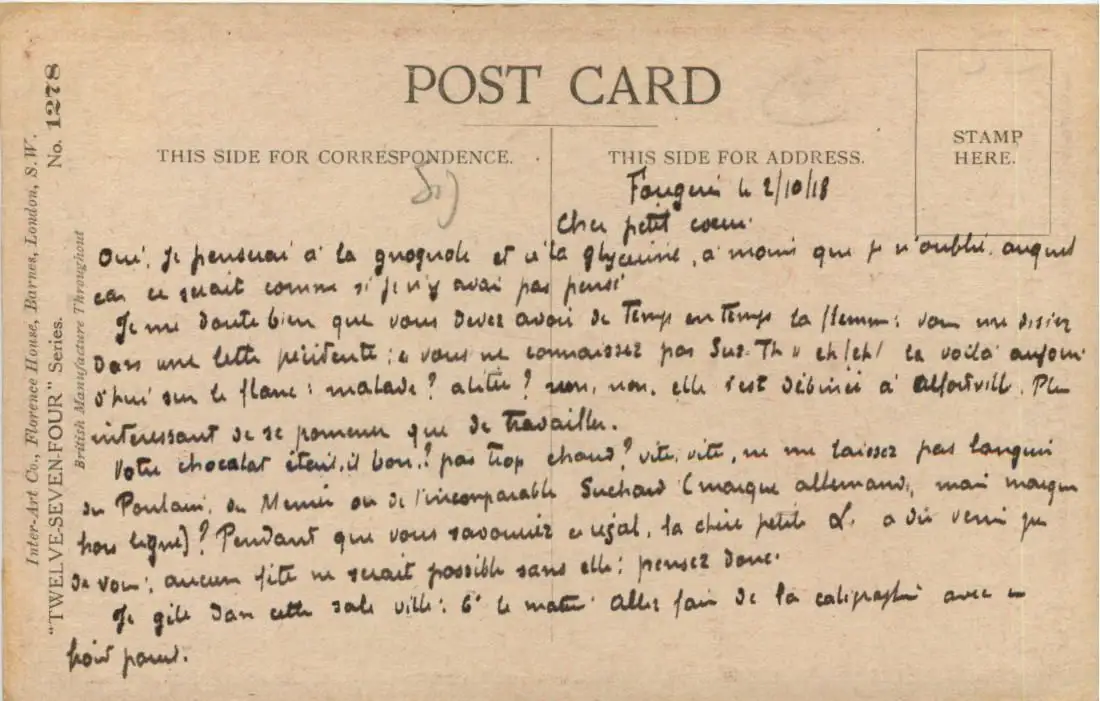 POST CARD
THIS SIDE FOR CORRESPONDENCE.
THIS SIDE FOR ADDRESS.
STAMP
HERE.
Inter-Art Co., Florence House, Barnes, London, S.W.
"TWELVE-SEVEN-FOUR" Series. No. 1278
British Manufacture Throughout
le 2/10/18
Cher petit coeur
Oui, je penserai à la gnognole et à la glycerine, à moins que je n'oublie, auquel
cas ce serait comme si je n'y avai pas pensé
Je me doute bien que vous devez avoir de temps en temps la flemme: vous me disiez
dans une lettre précédente: vous ne connaissez pas Suz. Th. eh! eh! la voilà aujour
d'hui sur le flanc: malade? alitée? non, non, elle s'est débinée à Alfortville. Plus
interessant de se promener que de travailler.
Votre chocolat était-il bon? pas trop chaud? vite, vite, ne me laissez pas languir
du Poulain, du Menier ou de l'incomparable Suchard (marque allemande, mais marque
hors ligne)? Pendant que vous savouriez ce régal, la chère petite L. a dû venir près
de vous: aucune fête ne serait possible sans elle: pensez donc.
Je gèle dans cette sale ville: 6° le matin. Allez faire de la caligraphie avec un
froid pareil.